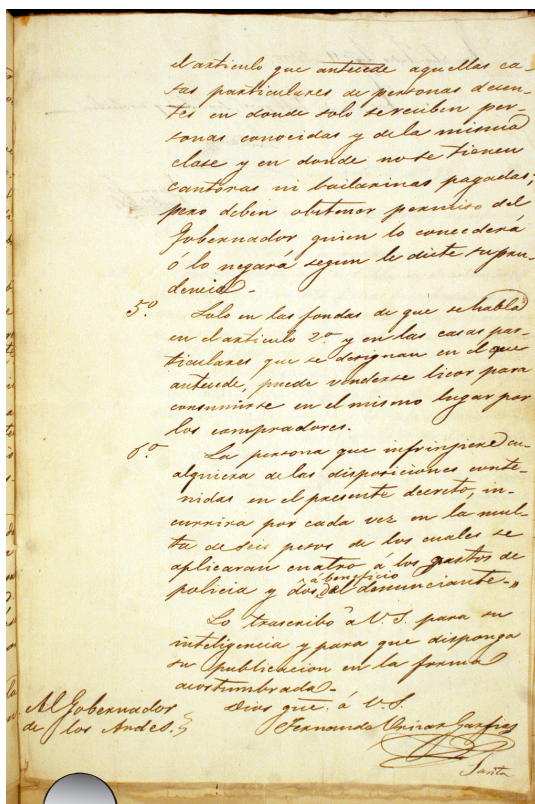 el articulo que antecede aquellas ca-
sas particulares de personas decen-
tes en donde solo se reciben per-
sonas conocidas y de la misma
clase y en donde no se tienen
cantoras ni bailarinas pagadas;
pero deben obtener permiso del
Gobernador quien lo concederá
ó lo negará segun le dicte su pru-
dencia.-
5º. Solo en las fondas de que se habla
en el articulo 2º. y en las casas par-
ticulares que se designan en el que
antecede, puede venderse licor para
consumirse en el mismo lugar por
los compradores.
6º. La persona que infrinjiere cu-
alquiera de las disposiciones conte-
nidas en el presente decreto, in-
currira por cada vez en la mul-
ta de seis pesos de los cuales se
aplicaran cuatro á los gastos de
á beneficio
policia y dos del denunciante-"
Lo trascribo á V.S. para su
inteligencia y para que disponga
su publicacion en la forma
acostumbrada.-
Dios gue. á V.S.
Al Gobernador
de los Andes.
Fernando Urizar Garfias
Santa